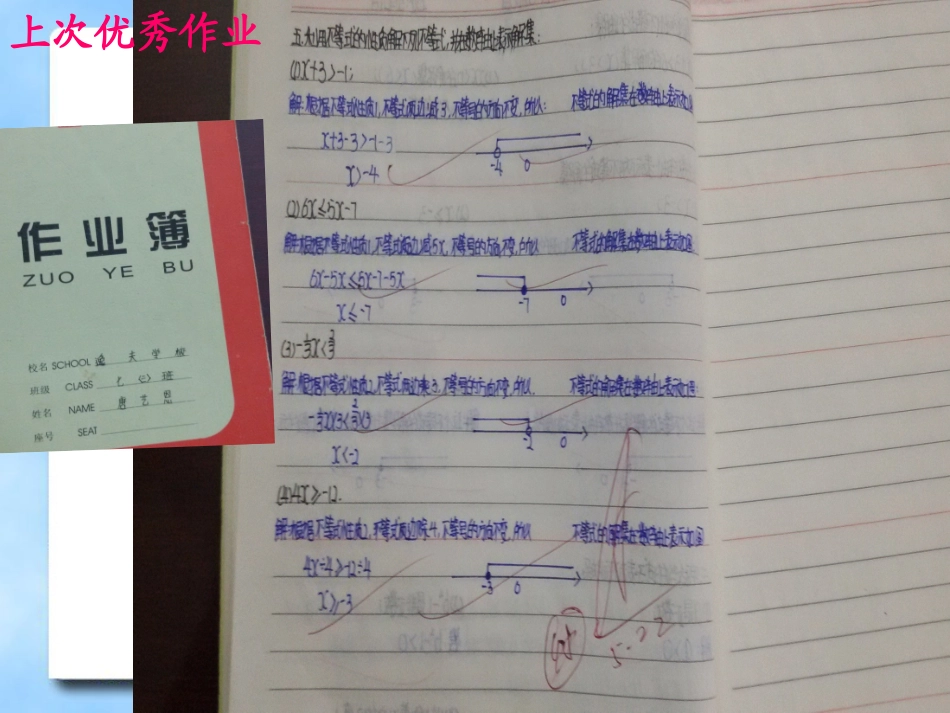 上次优秀作业
作业簿
ZUO YE BU
校名 SCHOOL 逸夫学校
班级 CLASS 七(2)班
姓名 NAME
座号 SEAT
(1)x+3>-1;
解:根据不等式性质1,不等式两边减3,不等号的方向不变,所以: 不等式的解集在数轴上表示如图
x+3-3>-1-3
-4 0
x>-4
(2)6x≤5x-7
解:根据不等式性质1,不等式两边减5x,不等号的方向不变,所以 不等式的解集在数轴上表示如图
6x-5x≤5x-7-5x
-7 0
x≤-7
解:根据不等式性质2,不等式两边乘3,不等号的方向不变,所以 不等式的解集在数轴上表示如图:
-2 0
x<-2
(4)4x≥-12.
解:根据不等式性质2,不等式两边除4,不等号的方向不变,所以 不等式的解集在数轴上表示如图
4x÷4≥-12÷4
-3 0
x≥-3
5-22